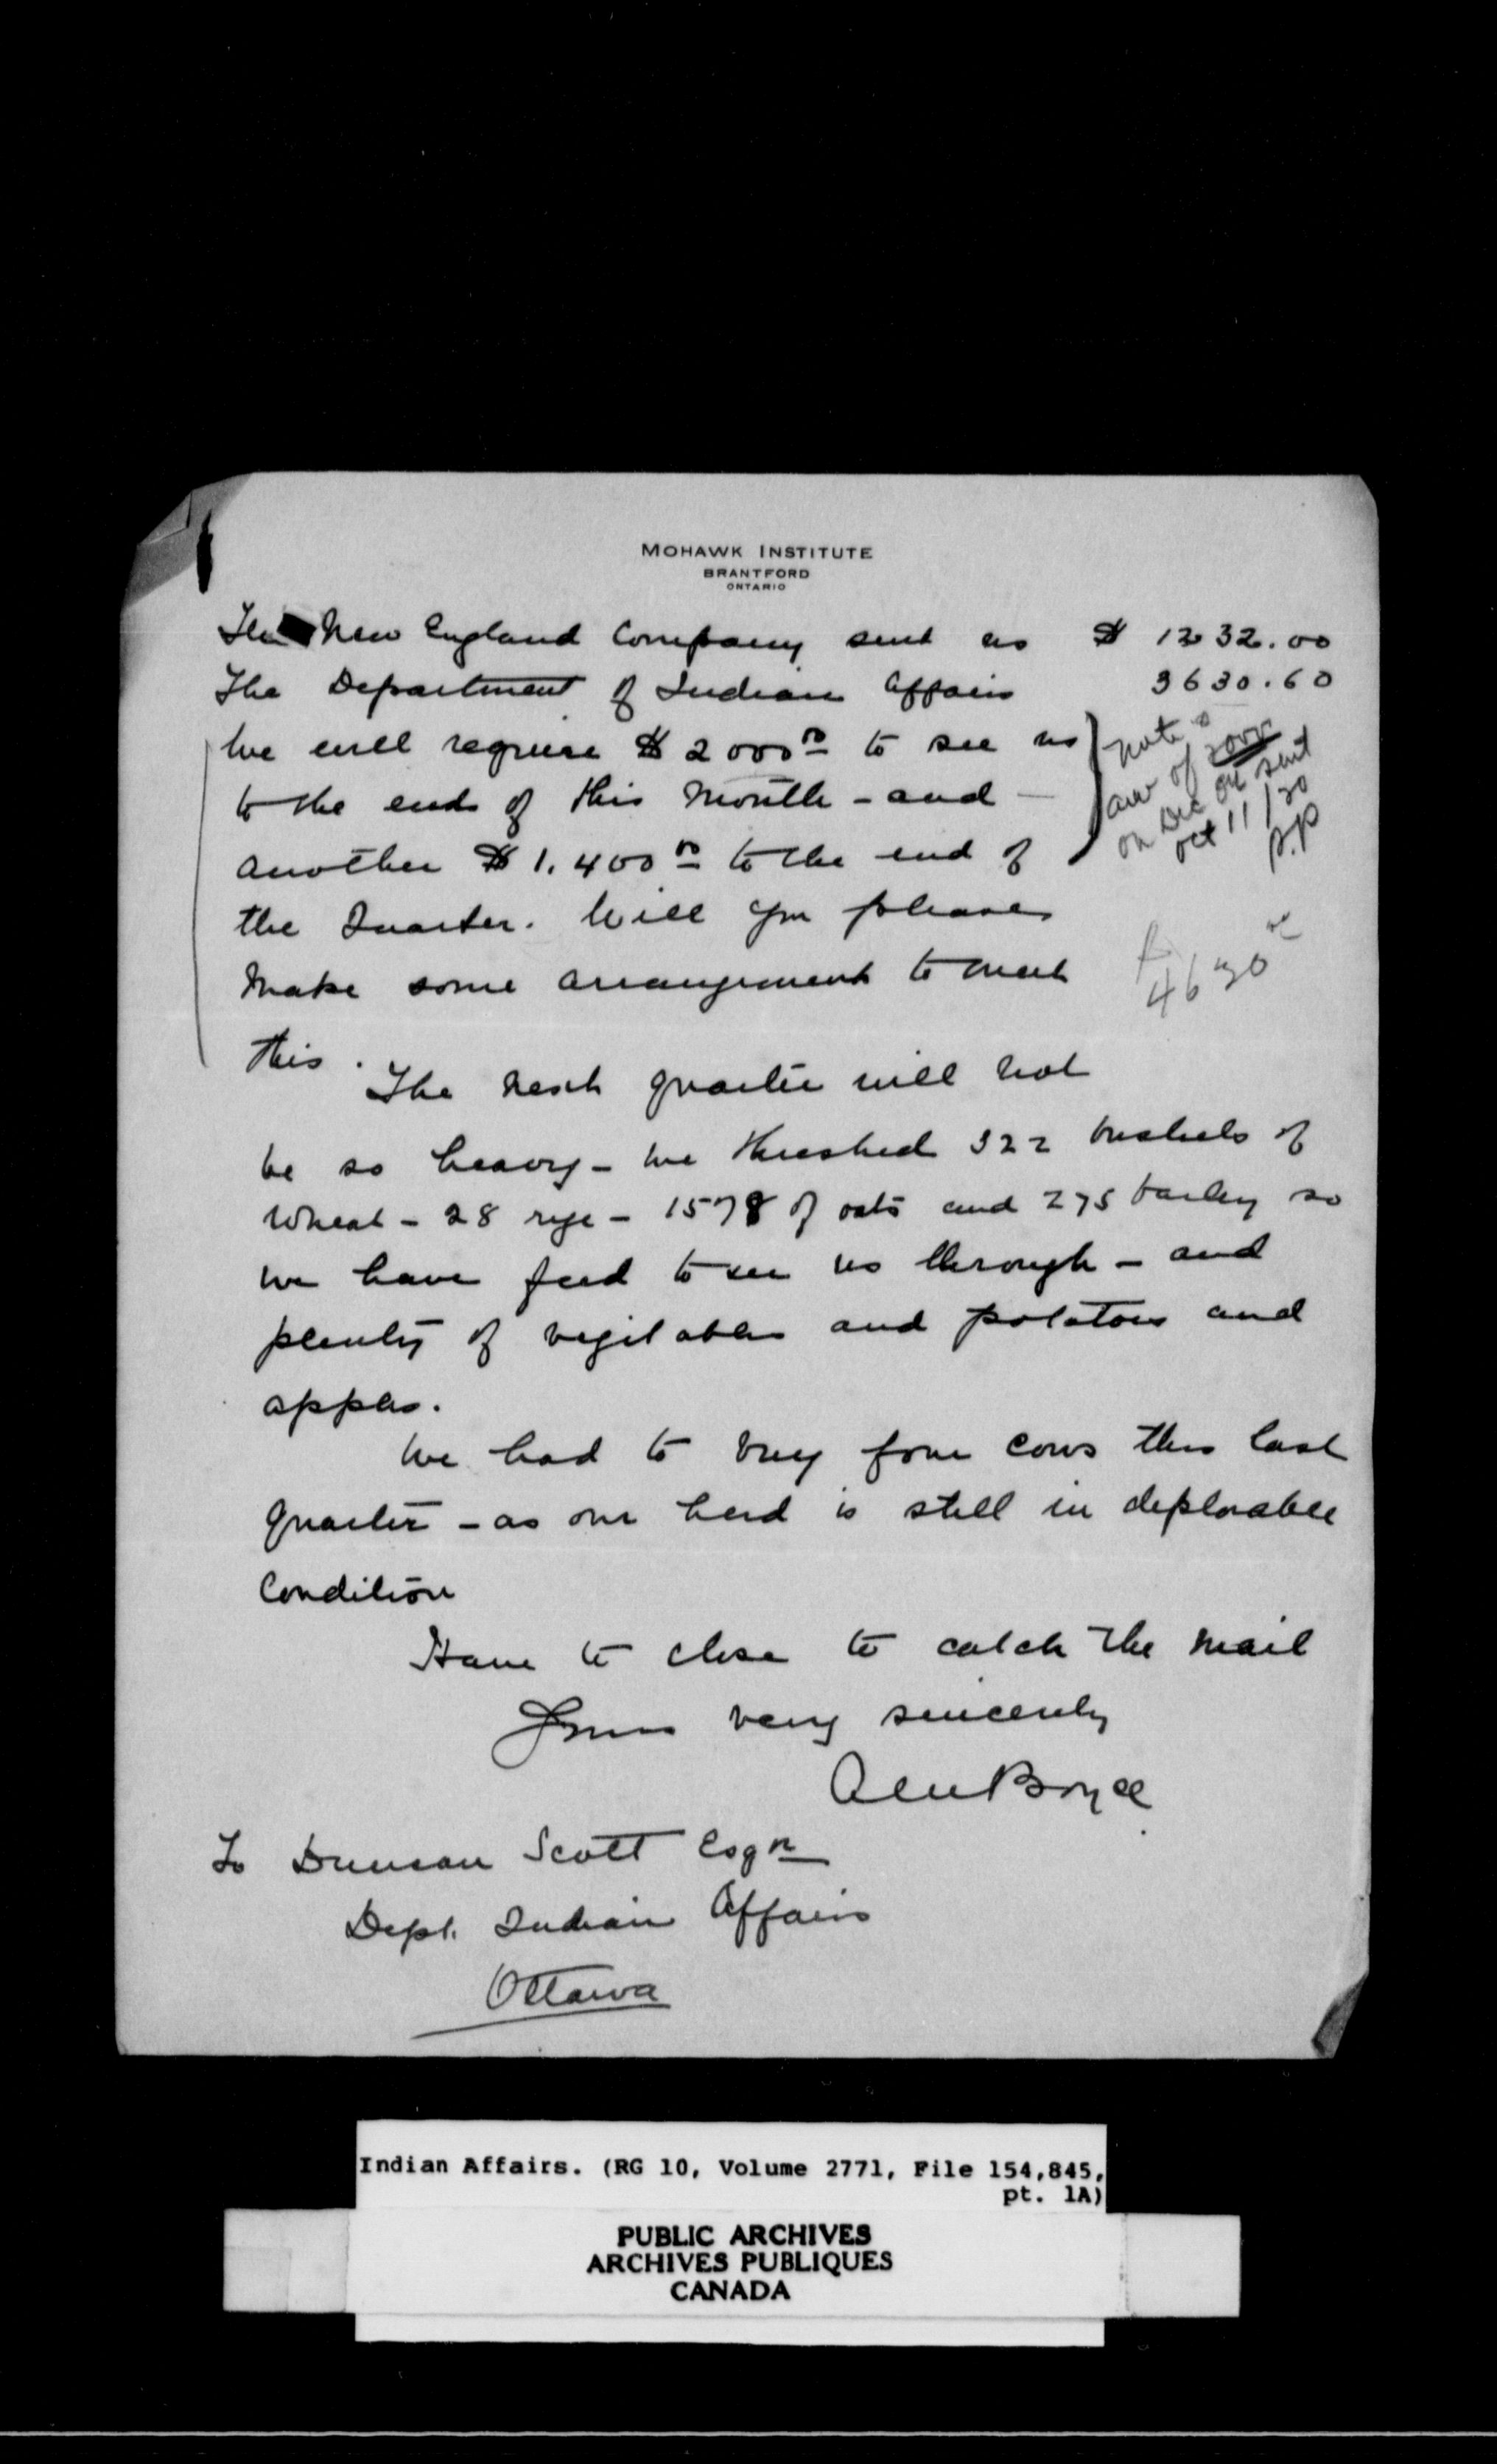 MOHAWK INSTITUTE
BRANTFORD
ONTARIO
The New England Company sent us $ 1232.00
The Department of Indian Affairs 3630.60
We will require $ 2000 00 to see us
to the end of this month - and -
another $ 1,400 00 to the end of
the Quarter. Will you please
make some arrangement to meet
this.
note
of 2000
on Dec sent
oct 11/20
p.p
4630
The next quarter will not
be so heavy - we threshed 322 bushels of
wheat - 28 rye - 1578 of oats and 275 barley so
we have feed to see us through - and
plenty of vegitables and potatoes and
apples.
We had to buy four cows this last
quarter - as our herd is still in deplorable
Condition
Have to close to catch the mail
Yours very sincerely
Boyce
To Duncan Scott Esqr
Dept. Indian Affairs
Ottawa
Indian Affairs. (RG 10, Volume 2771, File 154,845,
pt. 1A)
PUBLIC ARCHIVES
ARCHIVES PUBLIQUES
CANADA